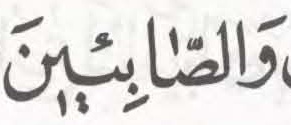 وَالصَّابِئِينَ